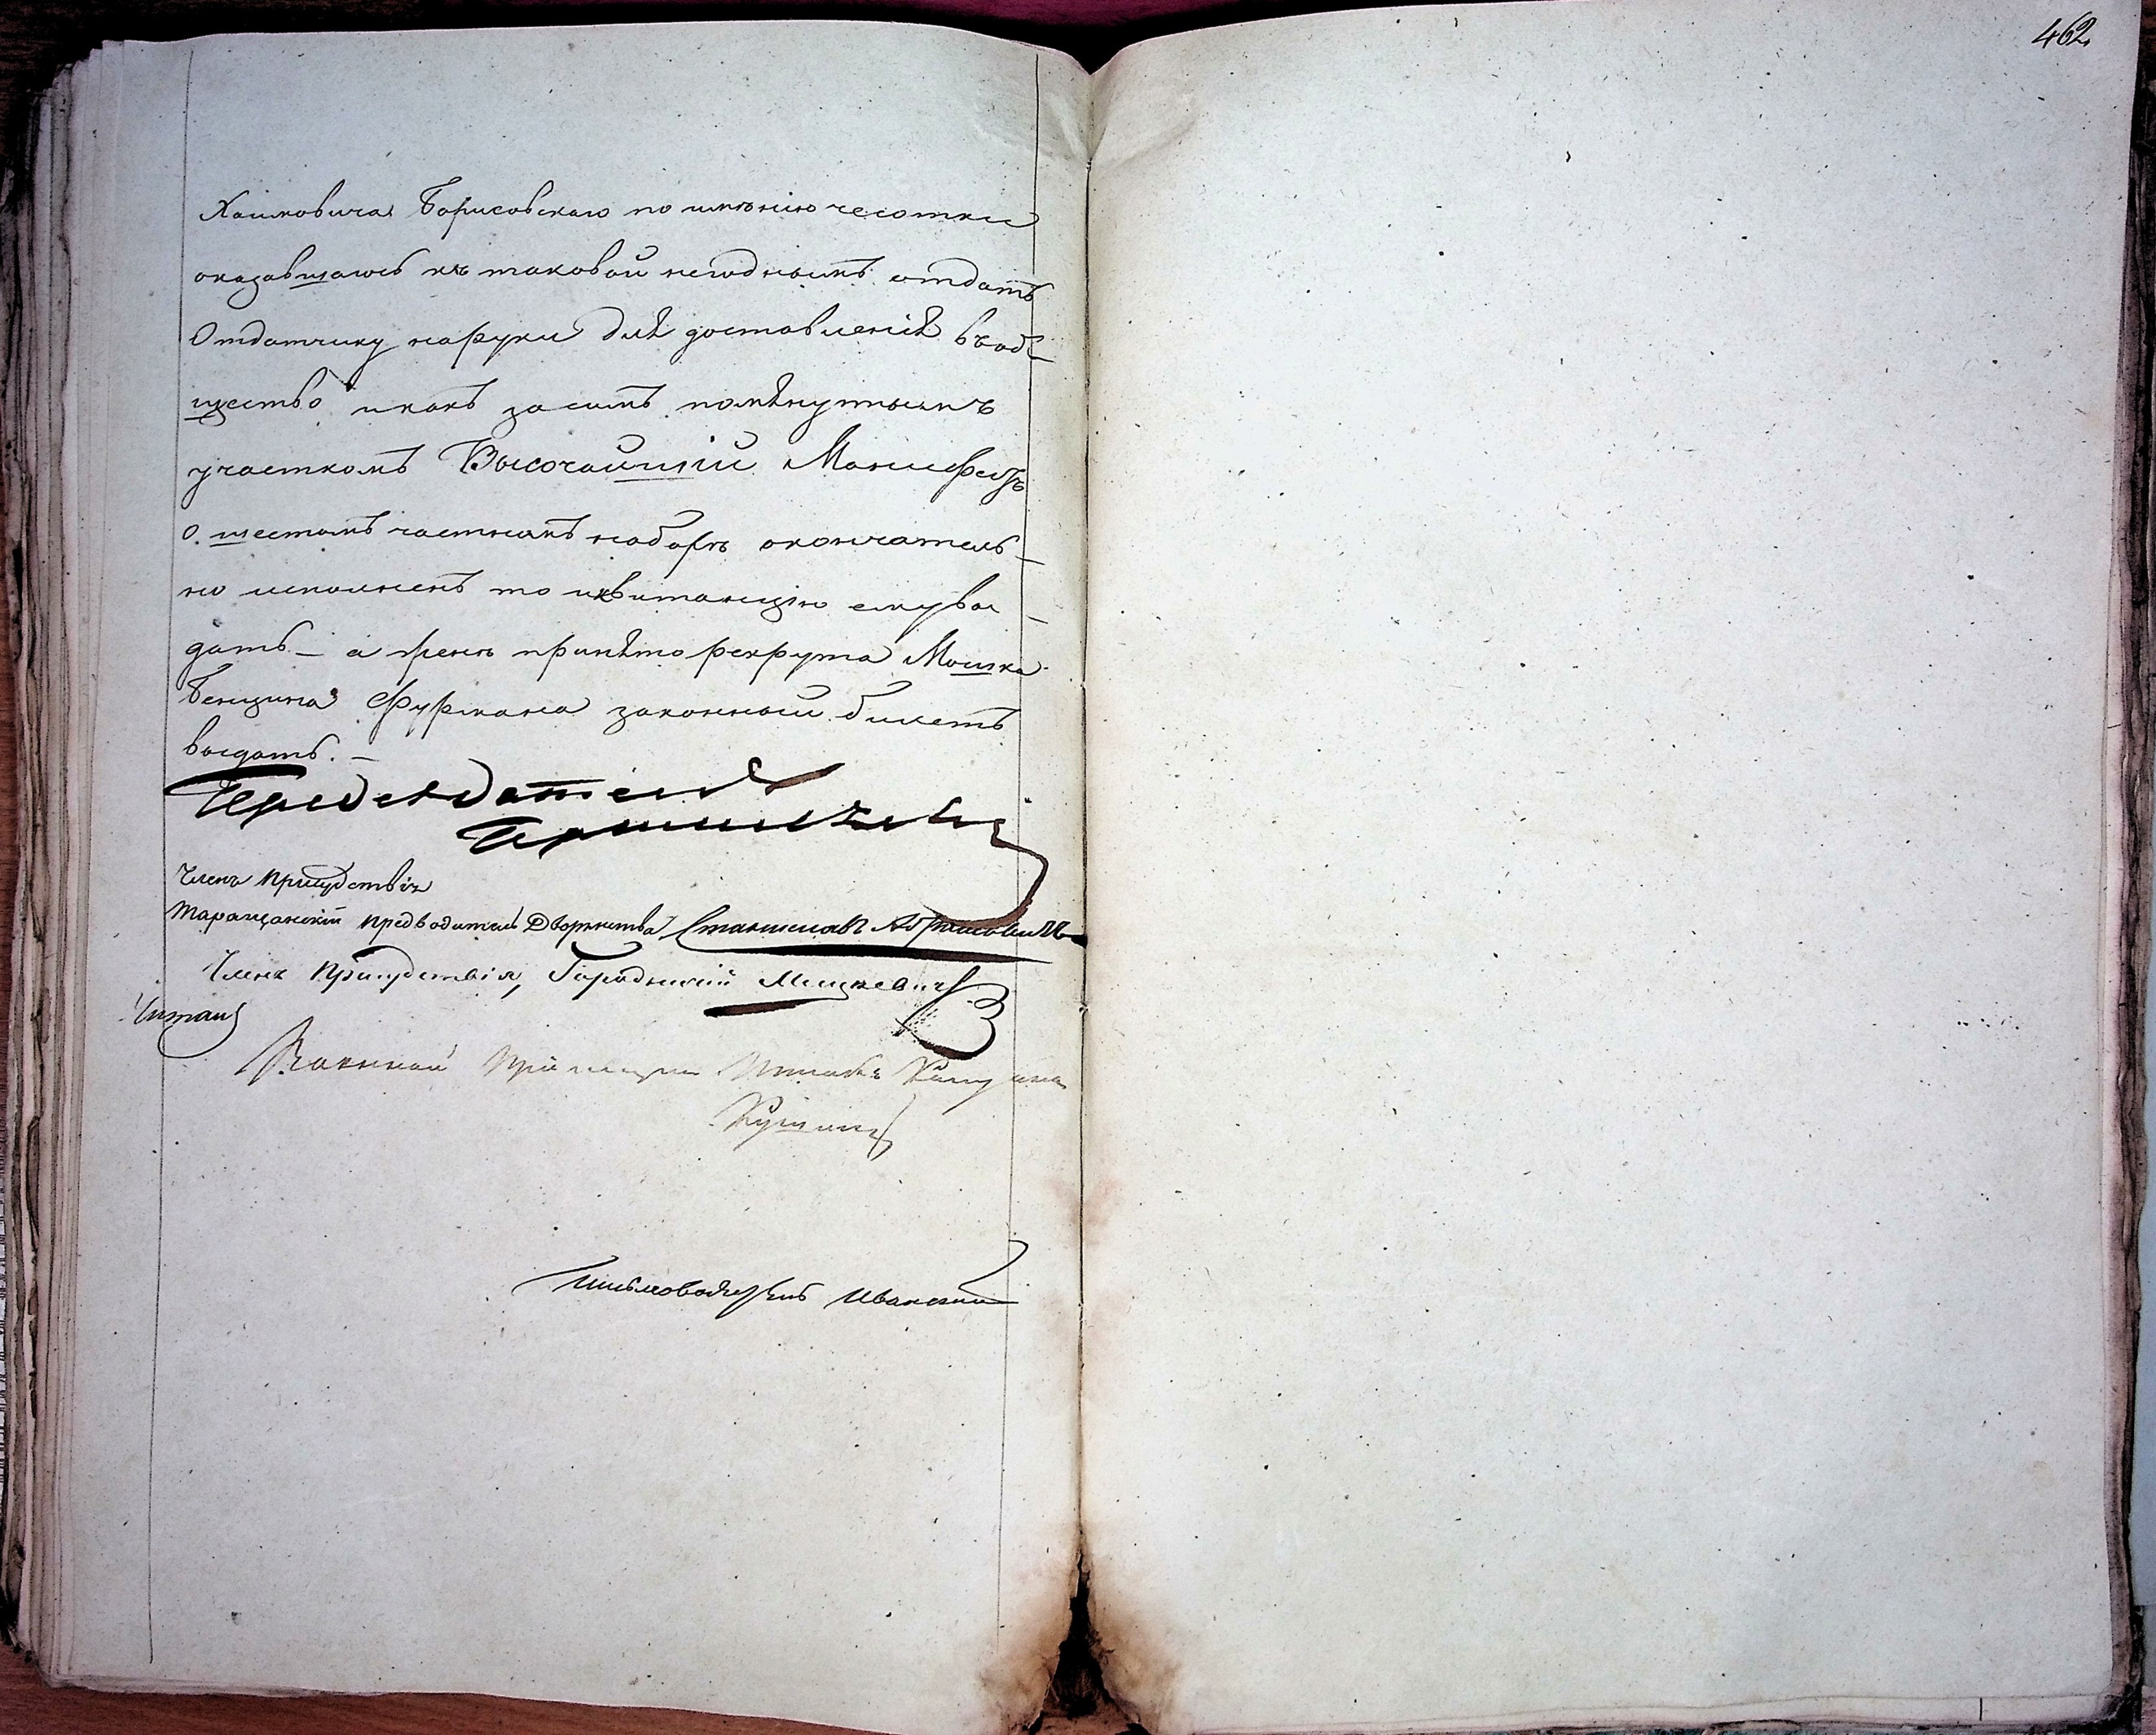 462
Хаимовича Борисовскаго по имѣнію чесотки
оказавшагось къ таковой негоднымъ отдать
Отдатчику наруки для доставленія въоб-
щество икакъ засимъ помянутымъ
участкомъ Высочайшій Манифестъ
о шестомъ частномъ наборѣ окончатель-
но исполненъ то иквитанцію емувы-
дать – а женѣ принято рекрута Мошка
Бенциона Фурмана законный билетъ
выдать. –
Предсѣдатель
Членъ присудствія
Таращанскій предводитель Дворянства Станиславъ
Членъ Присудствія, Городничій Мицкевичъ
Читалъ
Военный Пріемщикъ
Письмоводитель Иванскій